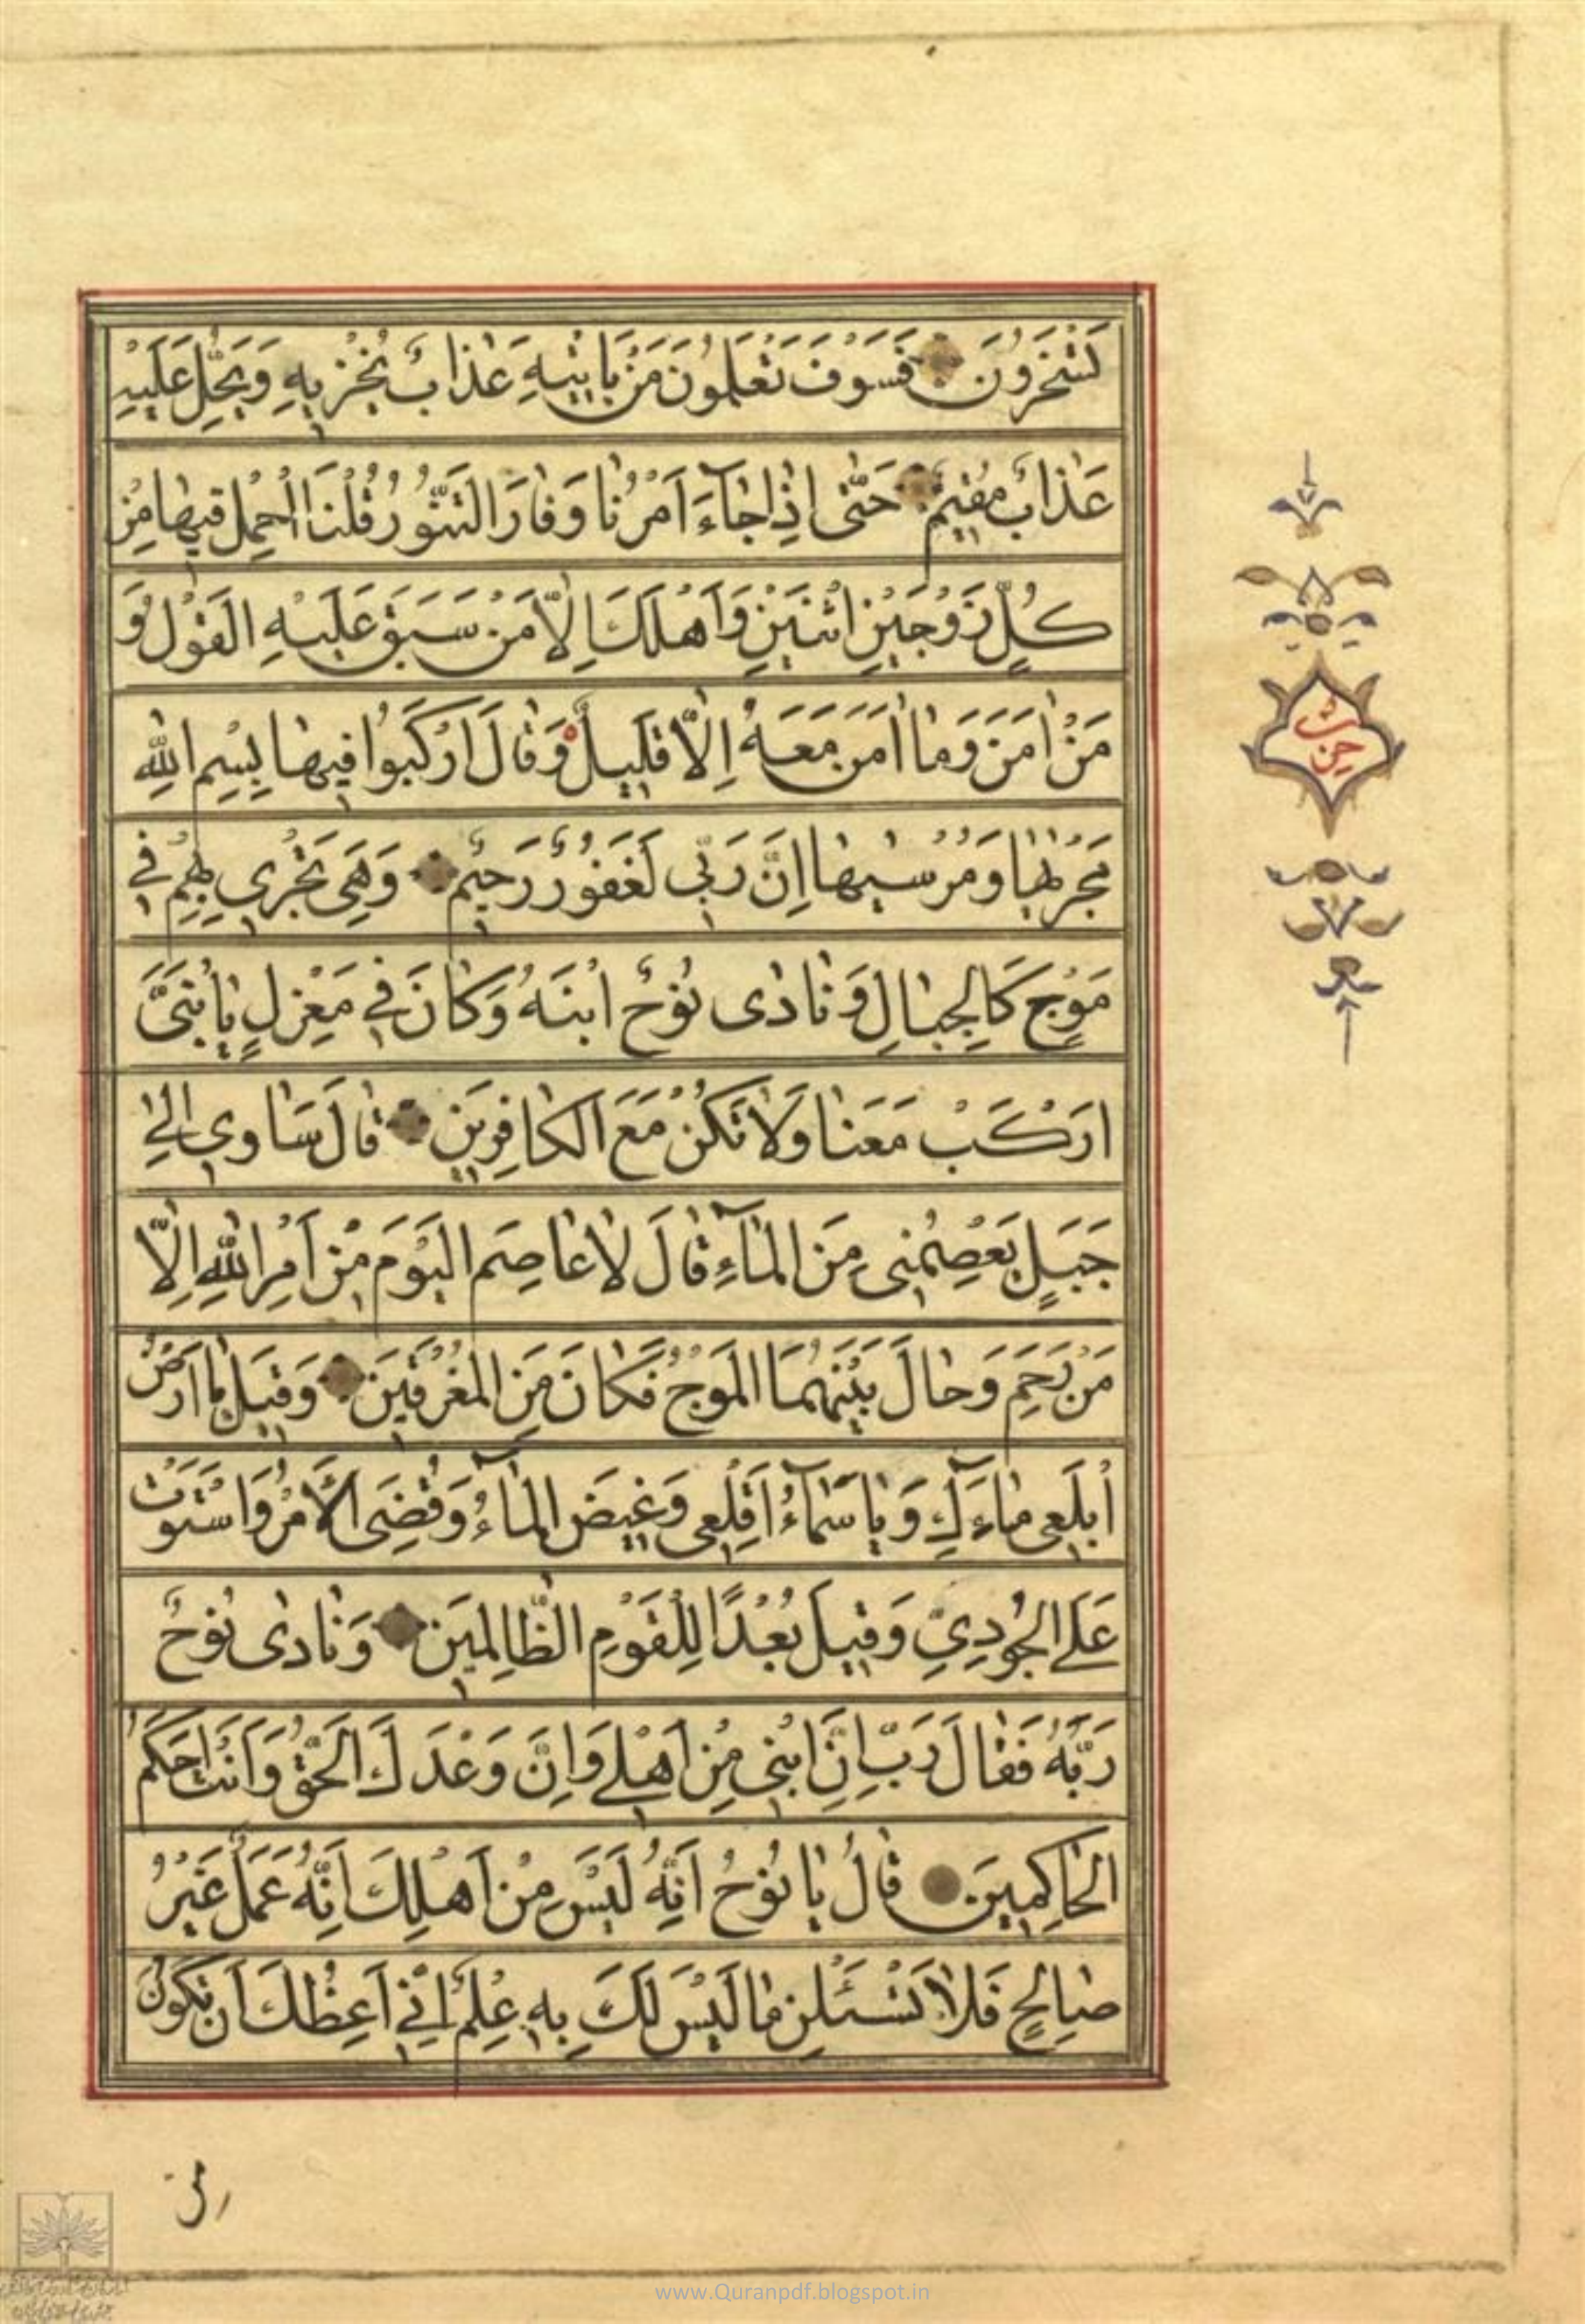 تَسْخَرُونَ فَسَوْفَ تَعْلَمُونَ مَنْ يَاْتِيهِ عَذابٌ يُخْزِيهِ وَيَحِلُّ عَلَيْهِ
عَذابٌ مُقِيمٌ حَتّٰى اِذا جآءَ اَمْرُنا وَفارَ التَّنُّورُ قُلْنَا احْمِلْ فِيها مِنْ
كُلٍّ زَوْجَيْنِ اثْنَيْنِ وَاَهْلَكَ اِلّا مَنْ سَبَقَ عَلَيْهِ الْقَوْلُ وَ
مَنْ اٰمَنَ وَما اٰمَنَ مَعَهُ اِلّا قَلِيلٌ وَقالَ ارْكَبُوا فِيها بِسْمِ اللهِ
مَجْرٰيها وَمُرْسٰيها اِنَّ رَبِّي لَغَفُورٌ رَحِيمٌ وَهِيَ تَجْرِي بِهِمْ فِي
مَوْجٍ كَالْجِبالِ وَنادٰى نُوحٌ ابْنَهُ وَكانَ فِي مَعْزِلٍ يابُنَيَّ
ارْكَبْ مَعَنا وَلا تَكُنْ مَعَ الْكافِرِينَ قالَ سَاوِي اِلٰى
جَبَلٍ يَعْصِمُنِي مِنَ الْمآءِ قالَ لا عاصِمَ الْيَوْمَ مِنْ اَمْرِ اللهِ اِلّا
مَنْ رَحِمَ وَحالَ بَيْنَهُمَا الْمَوْجُ فَكانَ مِنَ الْمُغْرَقِينَ وَقِيلَ يا اَرْضُ
ابْلَعِي مآءَكِ وَيا سَمآءُ اَقْلِعِي وَغِيضَ الْمآءُ وَقُضِيَ الْاَمْرُ وَاسْتَوَتْ
عَلَى الْجُودِيِّ وَقِيلَ بُعْدًا لِلْقَوْمِ الظّالِمِينَ وَنادٰى نُوحٌ
رَبَّهُ فَقالَ رَبِّ اِنَّ ابْنِي مِنْ اَهْلِي وَاِنَّ وَعْدَكَ الْحَقُّ وَاَنْتَ اَحْكَمُ
الْحاكِمِينَ قالَ يا نُوحُ اِنَّهُ لَيْسَ مِنْ اَهْلِكَ اِنَّهُ عَمَلٌ غَيْرُ
صالِحٍ فَلا تَسْئَلْنِ ما لَيْسَ لَكَ بِهِ عِلْمٌ اِنِّي اَعِظُكَ اَنْ تَكُونَ
حزب
www.Quranpdf.blogspot.in